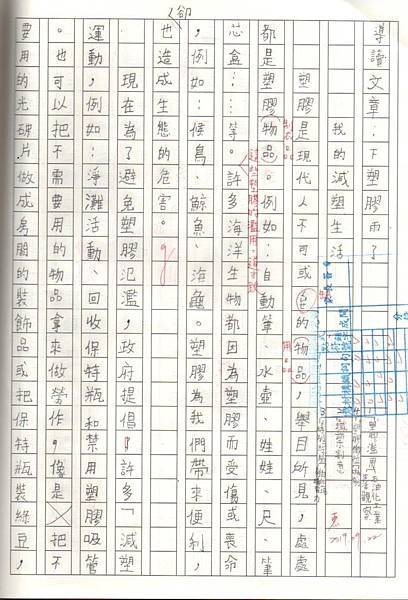 導讀文章:下塑膠雨了
我的減塑生活
塑膠是現代人不可或缺的物品,舉目所見,處處
都是塑膠物品。例如:自動筆、水壺、娃娃、尺、筆
芯盒……等。許多海洋生物都因為塑膠而受傷或喪命
,例如:候鳥、鯨魚、海龜。塑膠為我們帶來便利,
卻
也造成生態的危害。
現在為了避免塑膠氾濫,政府提倡許多「減塑
運動,例如:淨灘活動、回收保特瓶和禁用塑膠吸管
。也可以把不需要用的物品拿來做勞作,像是不
要用的光碟片做成房間的裝飾品或把保特瓶裝綠豆,
用品
2019.09.22